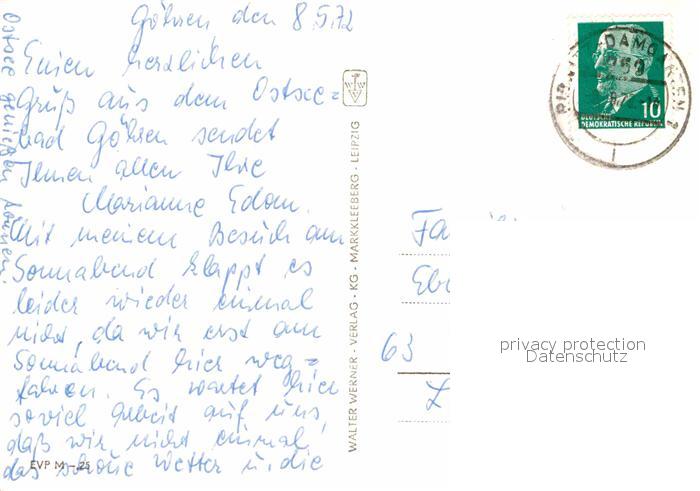 Göhren den 8.5.72
Einen herzlichen
Gruß aus dem Ostsee=
bad Göhren sendet
Ihnen allen Ihre
Marianne Edom.
Mit meinem Besuch am
Sonnabend klappt es
leider wieder einmal
nicht, da wir erst am
Sonnabend hier weg=
fahren. Es wartet hier
soviel Arbeit auf uns,
daß wir nicht einmal
das schöne Wetter u. die
Ostsee genießen können.
EVP M -.25
WALTER WERNER · VERLAG · KG · MARKKLEEBERG · LEIPZIG
10
DEUTSCHE
DEMOKRATISCHE REPUBLIK
Fa
63
privacy protection
Datenschutz